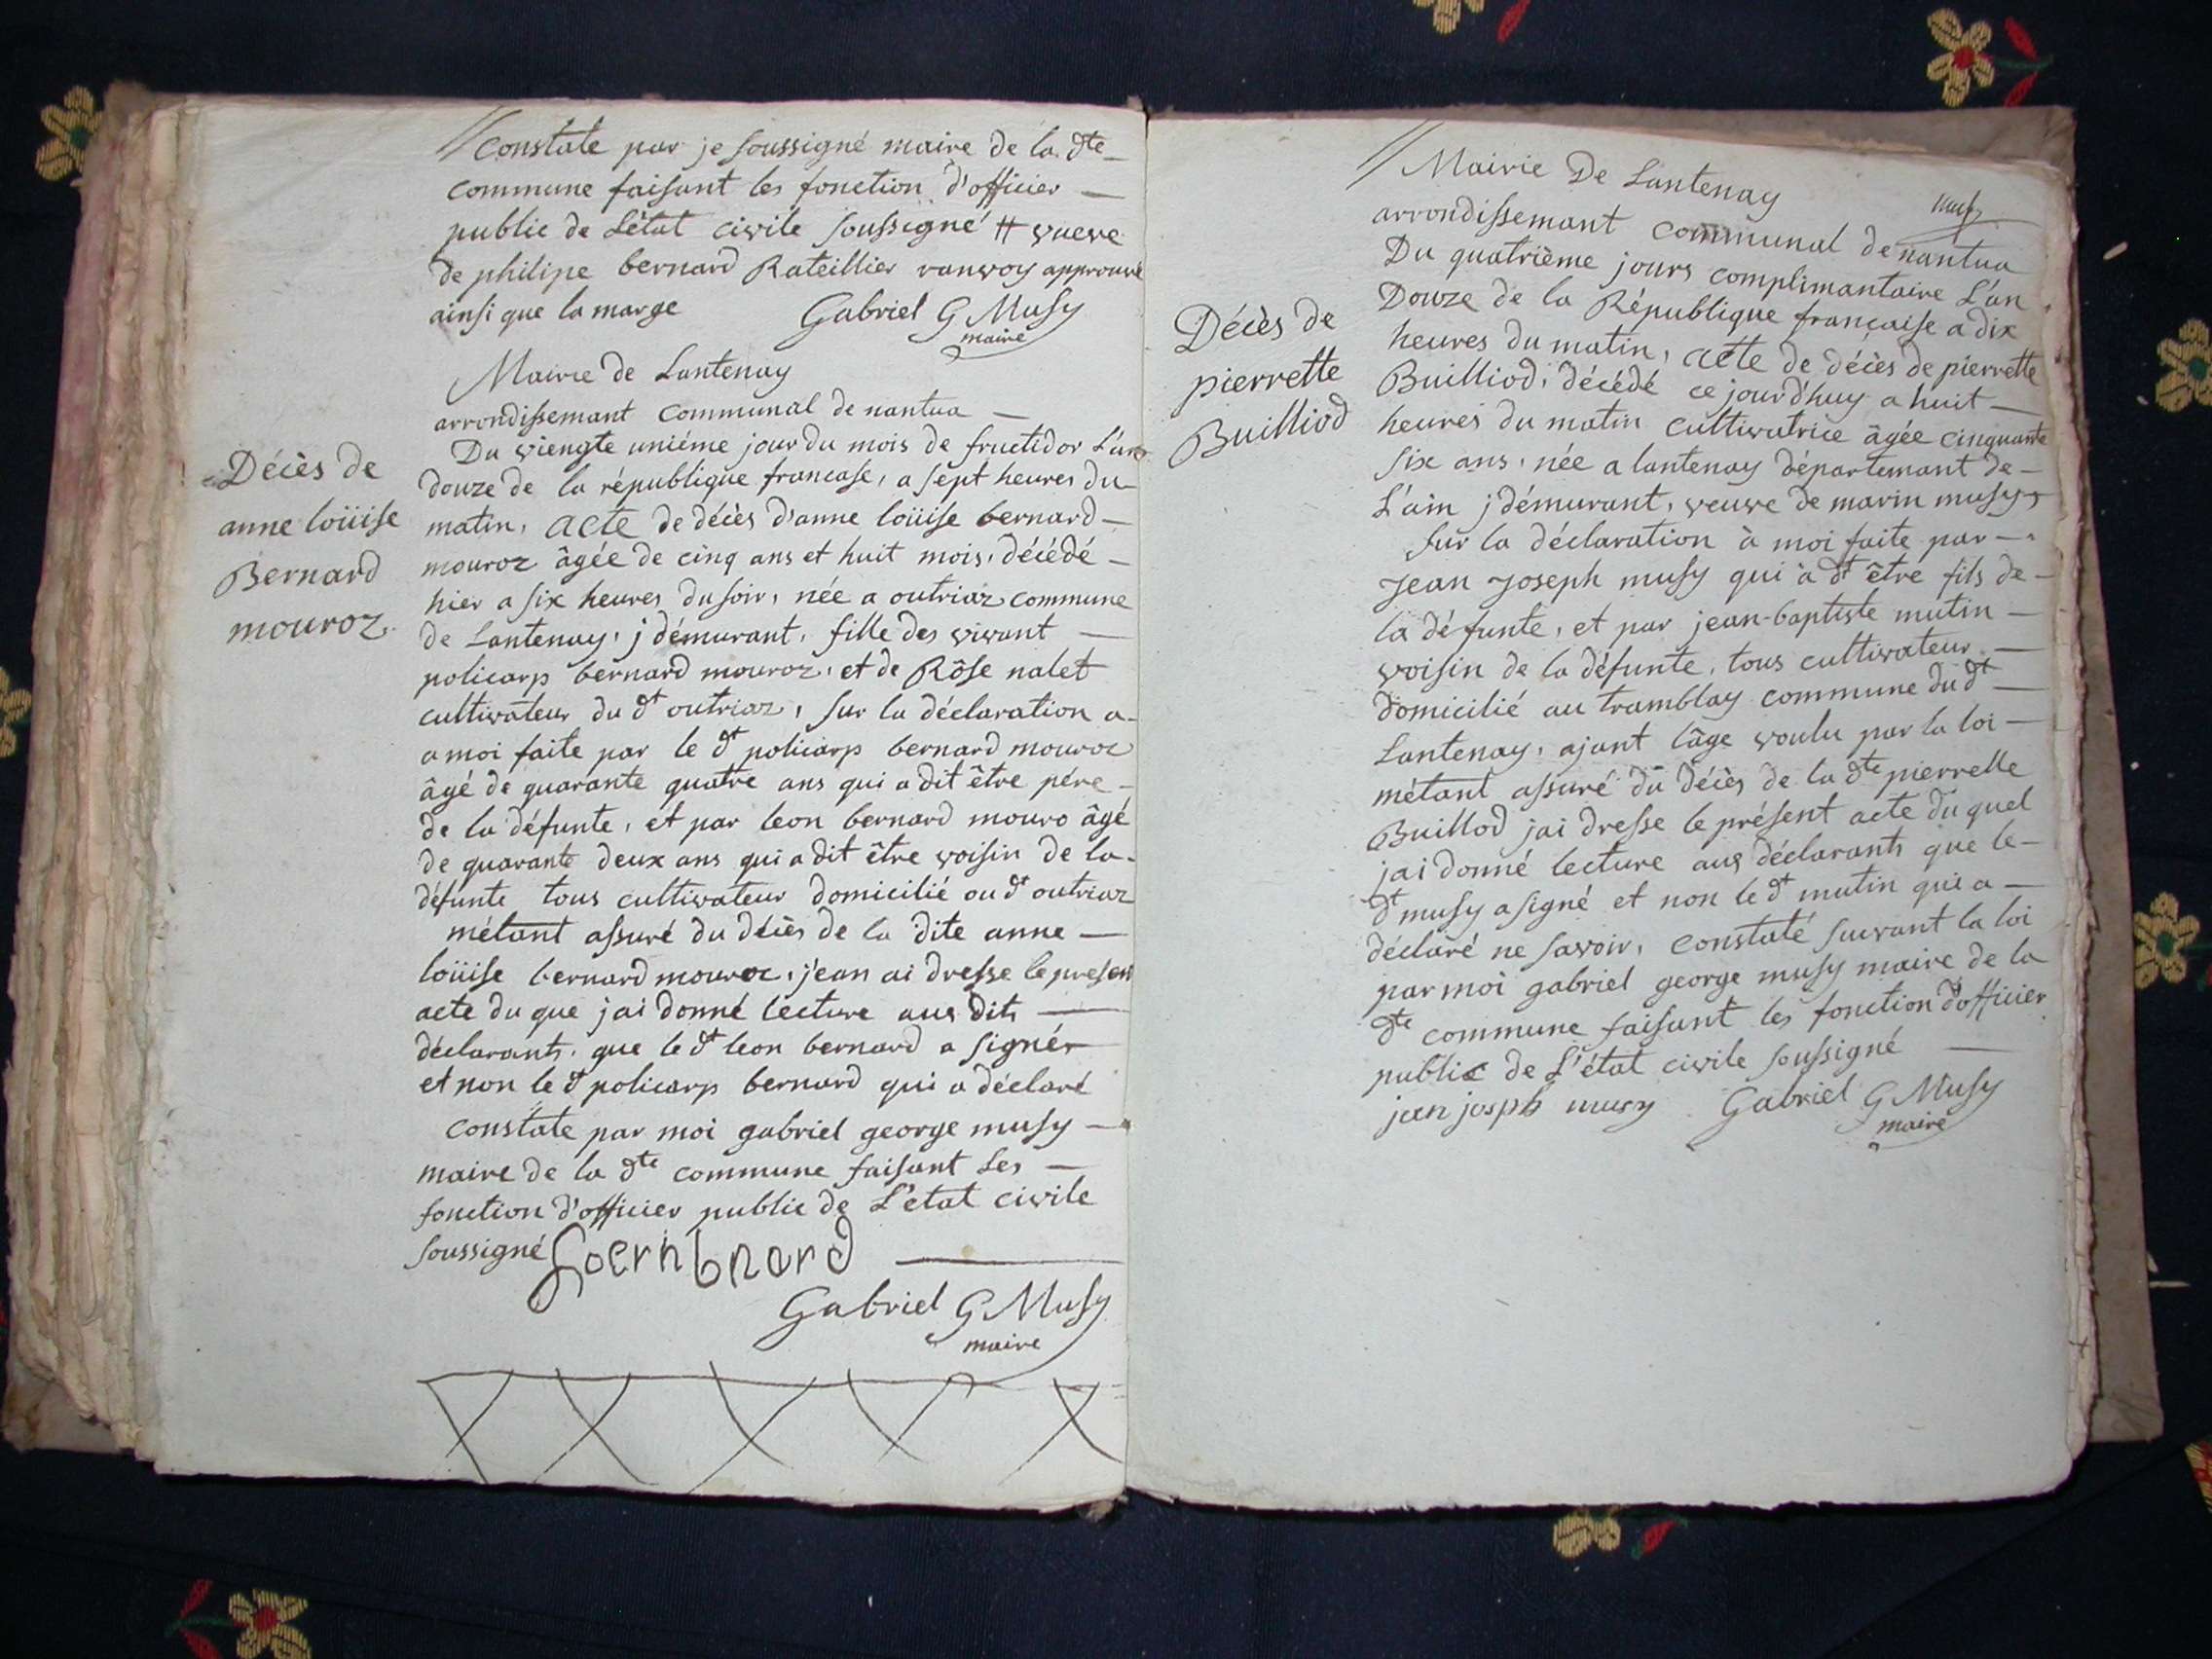 constate par je soussigné maire de la dte
commune faisant les fonction d'officier
public de L'état civile soussigné # vueve
de philipe bernard Rateillier ranvoy approuvé
ainsi que la marge Gabriel G Musy
maire
Mairie de Lantenay
arrondissemant communal de nantua
Du viengte uniéme jour du mois de fructidor L'an
douze de la république francase, a sept heures du
matin, acte de décès d'anne loüise bernard
mouroz âgée de cinq ans et huit mois, décédé
hier a six heures du soir, née a outriaz commune
de Lantenay, j démurant, fille des vivant
policarp bernard mouroz, et de Rôse nalet
cultivateur du dt outriaz, sur la déclaration a
a moi faite par le dt policarp bernard mouroz
âgé de quarante quatre ans qui a dit être pére
de la défunte, et par leon bernard mouro âgé
de quarante deux ans qui a dit être voisin de la
défunte tous cultivateur domicilié ou dt outriaz
métant assuré du décès de la dite anne
loüise bernard mouroz, j'ean ai dresse le present
acte du que jai donné lecture aus dits
déclarants, que le dt leon bernard a signér
et non le dt policarp bernard qui a déclaré
constate par moi gabriel george musy
maire de la dte commune faisant Les
fonction d'officier public de L'etat civile
soussigné
Gabriel G Musy
maire
Décès de
anne loüise
Bernard
mouroz
Mairie De Lantenay
musy
arrondissemant communal de nantua
Du quatrième jours complimantaire L'an
Douze de la République française a dix
heures du matin, acte de décès de pierrette
Builliod, décédé ce jourd'huy a huit
heures du matin cultivatrice âgée cinquante
six ans, née a lantenay départemant de
L'ain j démurant, veuve de marin musy
sur la déclaration à moi faite par
Jean Joseph musy qui a dt être fils de
la défunte, et par jean-baptiste mutin
voisin de la défunte, tous cultivateur
domicilié au tramblay commune du dt
Lantenay, ajant l'âge voulu par la loi
métant assuré du décès de la dte pierrette
Buillod jai dresse le présent acte du quel
jai donné lecture aus déclarants que le
dt musy a signé et non le dt mutin qui a
déclaré ne savoir, constaté suivant la loi
par moi gabriel george musy maire de la
dte commune faisant les fonction d'officier
public de L'état civile soussigné
jean josph musy Gabriel G Musy
maire
Décès de
pierrette
Builliod